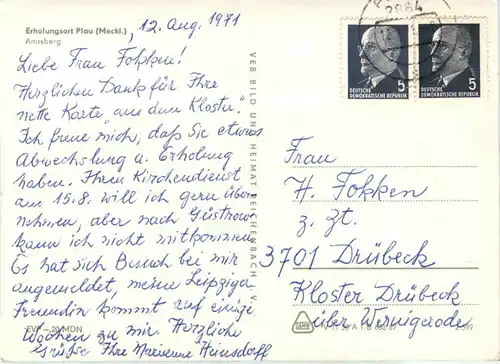 Erholungsort Plau (Meckl.)
Amtsberg
12. Aug. 1971
Liebe Frau Fokken!
Herzlichen Dank für Ihre
nette Karte „aus dem Kloster".
Ich freue mich, daß Sie etwas
Abwechslung u. Erholung
haben. Ihren Kirchendienst
am 15.8. will ich gern über=
nehmen, aber nach Güstrow
kann ich nicht mitkommen.
Es hat sich Besuch bei mir
angemeldet, meine Leipziger
Freundin kommt auf einige
Wochen zu mir. Herzliche
Grüße Ihre Marianne
EVP –,20 MDN
VEB BILD UND HEIMAT REICHENBACH I. V.
2864
DEUTSCHE
DEMOKRATISCHE REPUBLIK
5
DEUTSCHE
DEMOKRATISCHE REPUBLIK
5
Frau
H. Fokken
z. Zt.
3701 Drübeck
Kloster Drübeck
über Wernigerode